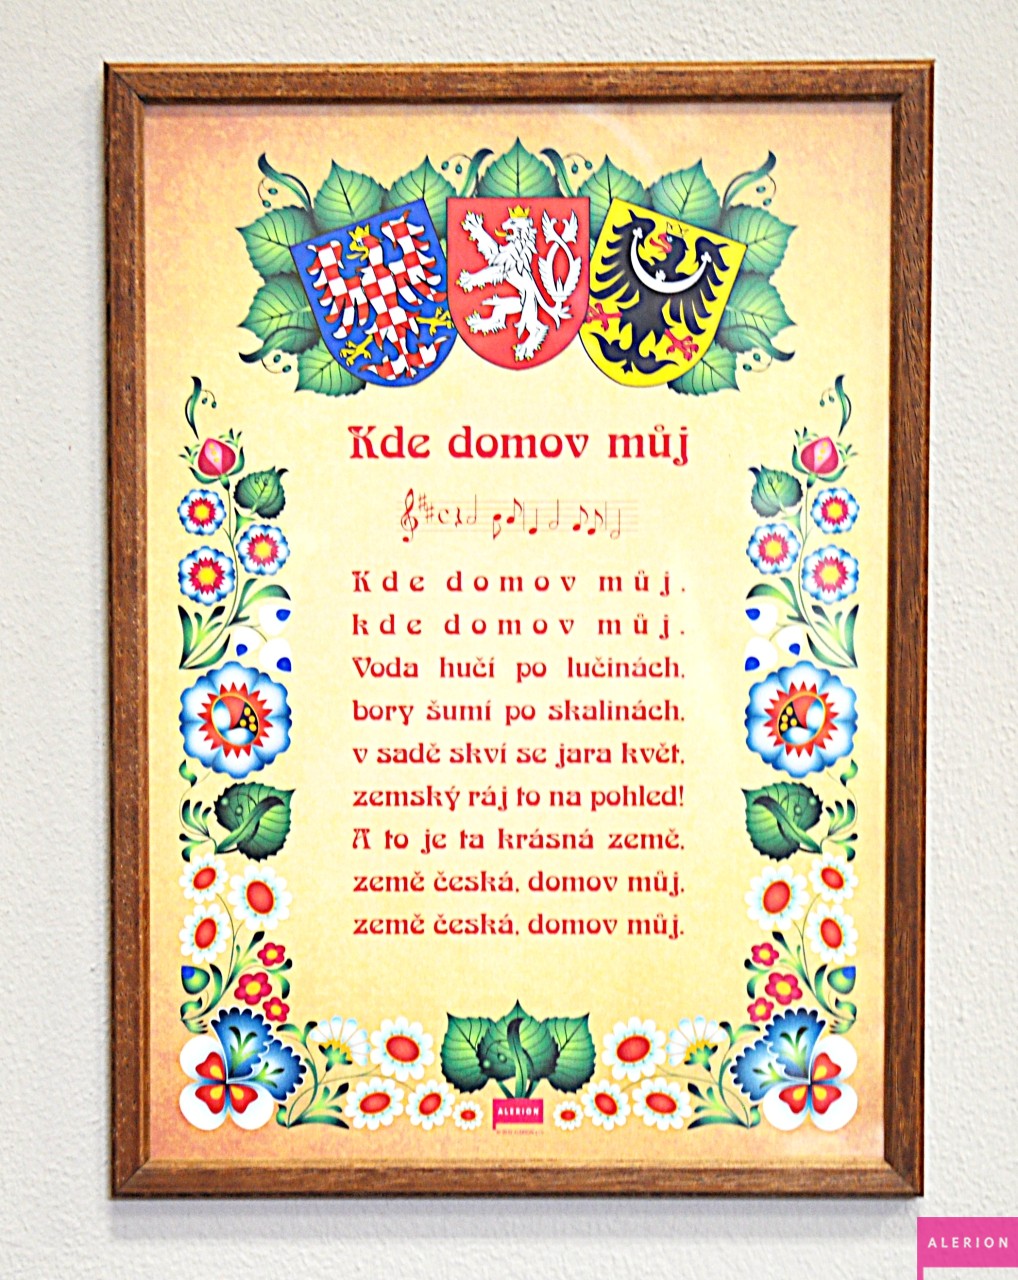 Kde domov můj
Kde domov můj,
kde domov můj.
Voda hučí po lučinách,
bory šumí po skalinách,
v sadě skví se jara květ,
zemský ráj to na pohled!
A to je ta krásná země,
země česká, domov můj,
země česká, domov můj.
ALERION
ALERION